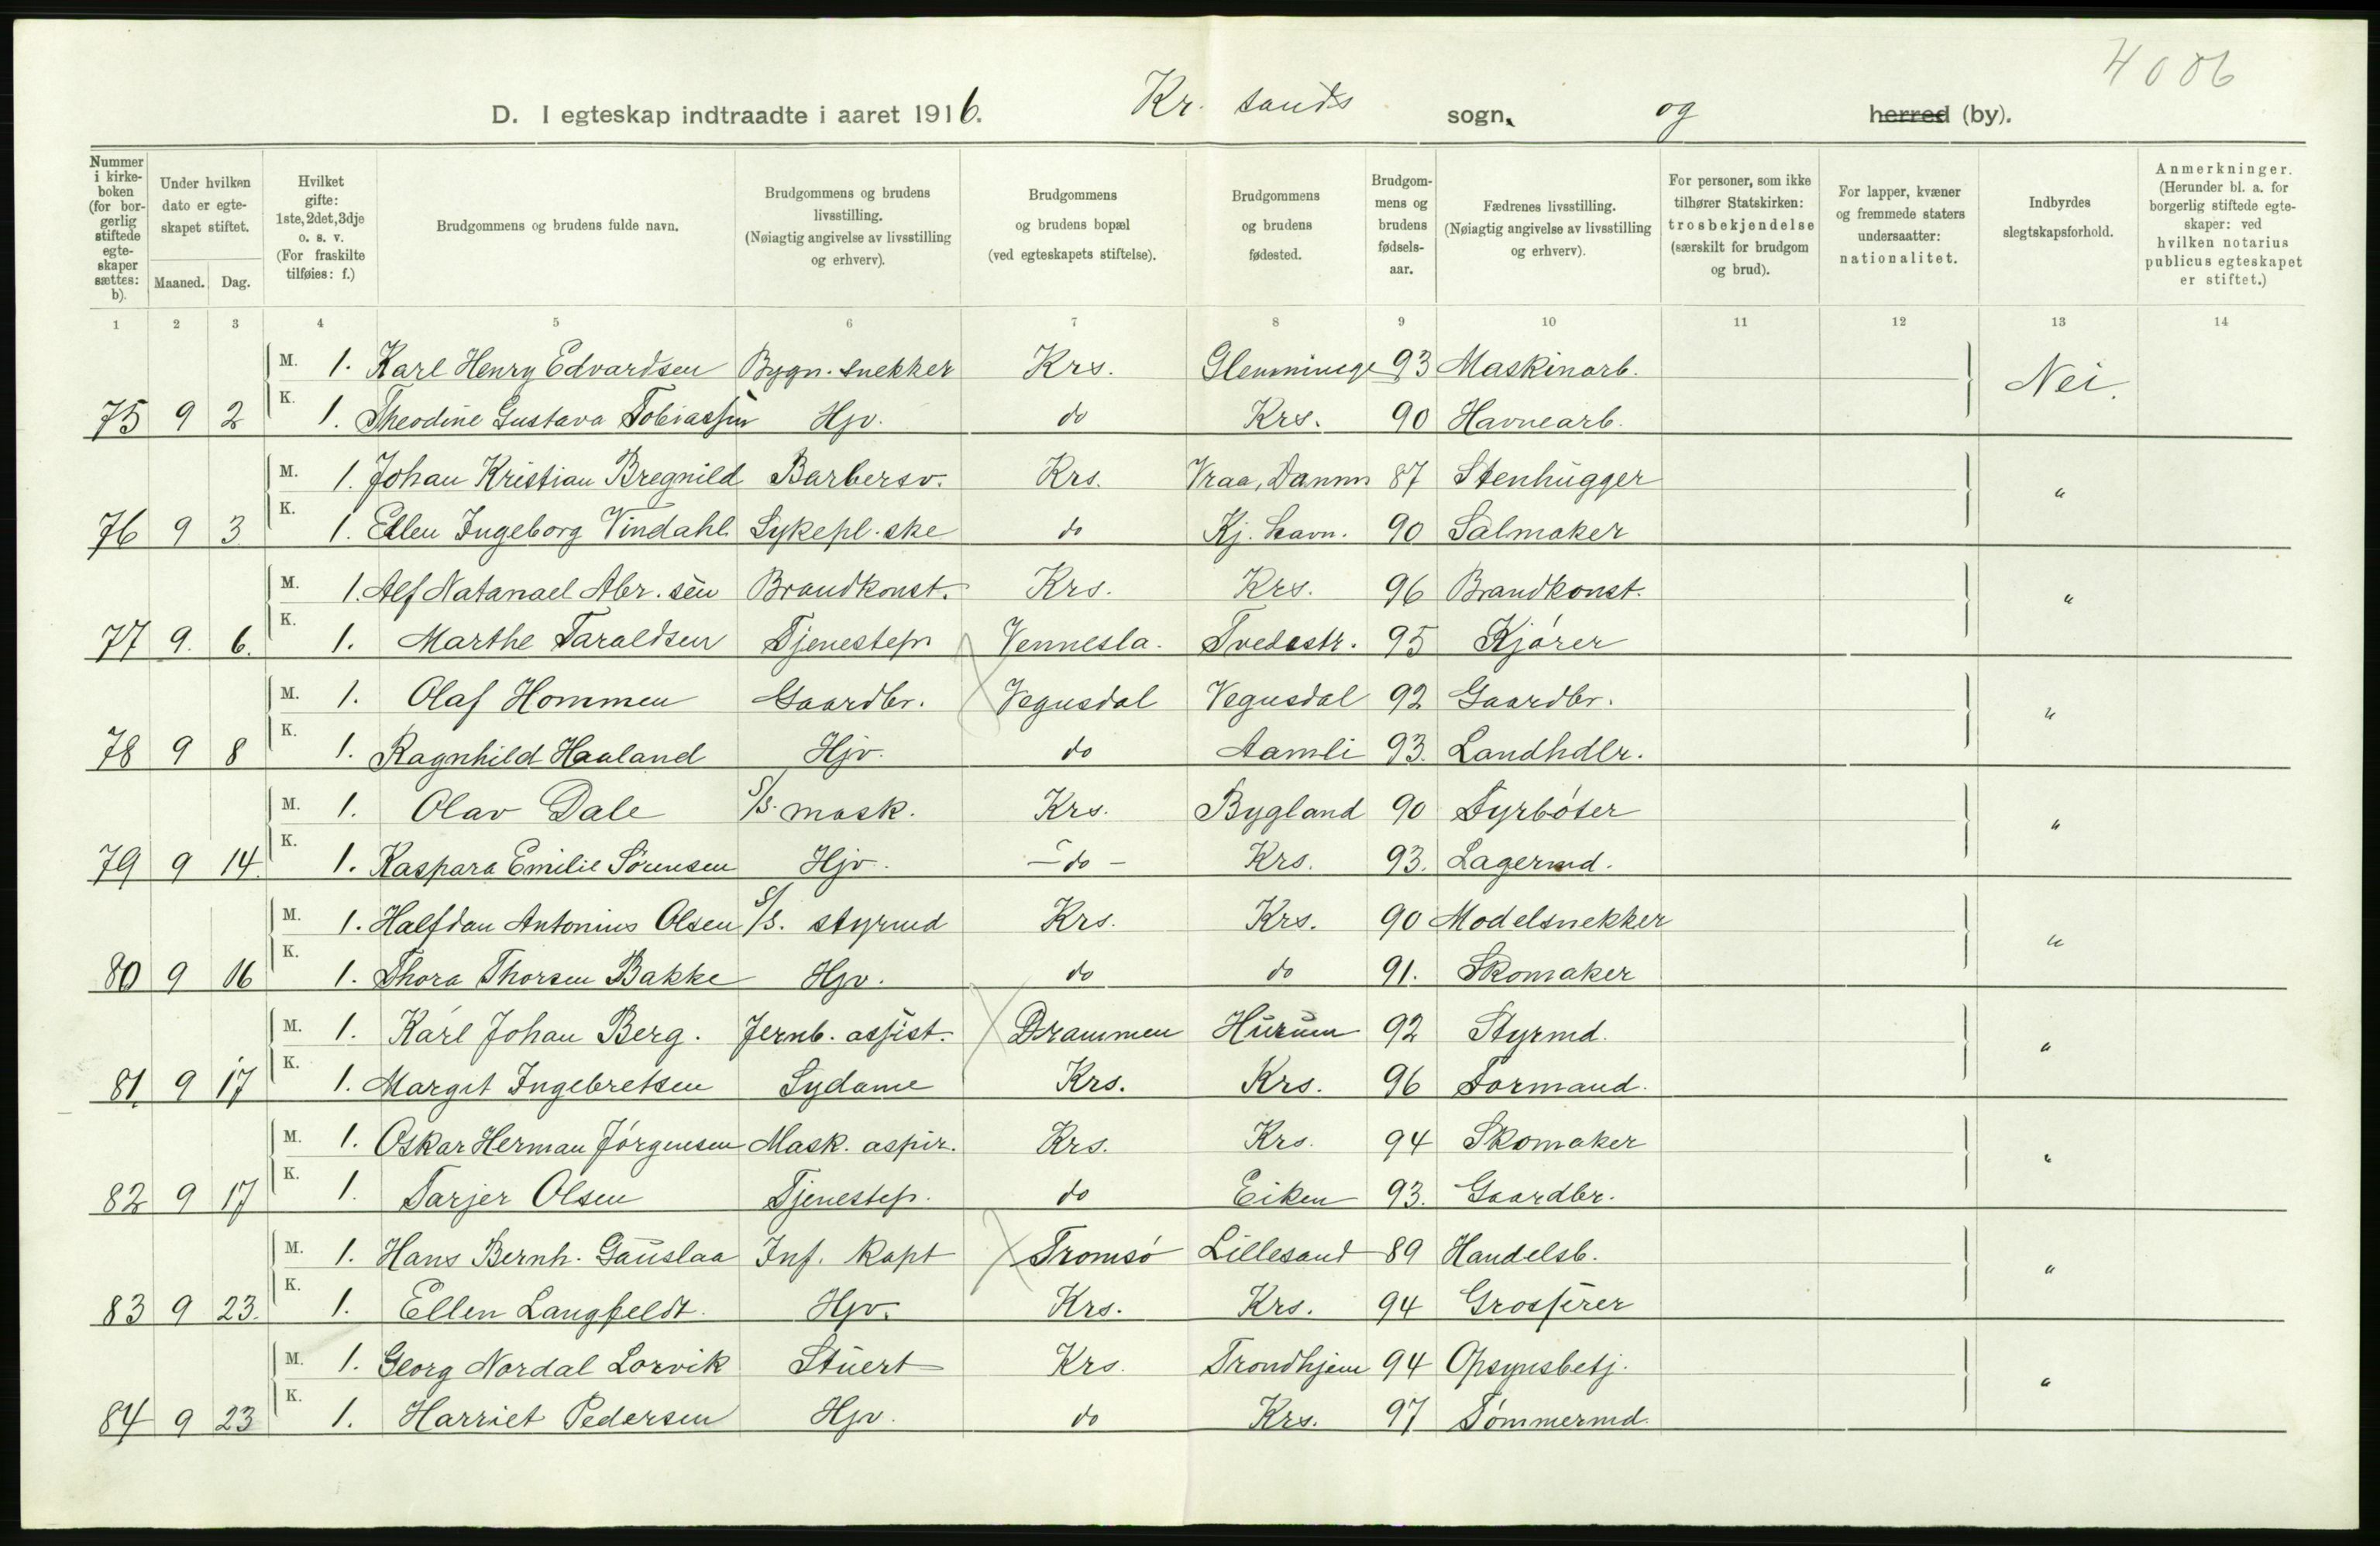 4006
D. I egteskap indtraadte i aaret 1916. Kr. sands sogn. og herred (by).
Nummer i kirkeboken (for borgerlig stiftede egteskaper sættes: b).
Under hvilken dato er egteskapet stiftet.
Maaned. Dag.
Hvilket gifte: 1ste, 2det, 3dje o. s. v. (For fraskilte tilføies: f.)
Brudgommens og brudens fulde navn.
Brudgommens og brudens livsstilling. (Nøiagtig angivelse av livsstilling og erhverv).
Brudgommens og brudens bopæl (ved egteskapets stiftelse).
Brudgommens og brudens fødested.
Brudgommens og brudens fødselsaar.
Fædrenes livsstilling. (Nøiagtig angivelse av livsstilling og erhverv).
For personer, som ikke tilhører Statskirken: trosbekjendelse (særskilt for brudgom og brud).
For lapper, kvæner og fremmede staters undersaatter: nationalitet.
Indbyrdes slegtskapsforhold.
Anmerkninger. (Herunder bl. a. for borgerlig stiftede egteskaper: ved hvilken notarius publicus egteskapet er stiftet.)
1 2 3 4 5 6 7 8 9 10 11 12 13 14
M. 1. Karl Henry Edvardsen Bygn. snekker Krs. Glemminge 93 Maskinarb. Nei.
75 9 2 K. 1. Theodine Gustava Tobiassen Hjv. do Krs. 90 Havnearb.
M. 1. Johan Kristian Bregnild Barbersv. Krs. Vraa, Danm 87 Stenhugger "
76 9 3 K. 1. Ellen Ingeborg Vindahl Sykepl.ske do Kj. havn. 90 Salmaker
M. 1. Alf Natanael Abr.sen Brandkonst. Krs. Krs. 96 Brandkonst. "
77 9. 6. K. 1. Marthe Taraldsen Tjenestep. Vennesla. Tvedestr. 95 Kjører
M. 1. Olaf Hommen Gaardbr. Vegusdal Vegusdal 92 Gaardbr. "
78 9 8 K. 1. Ragnhild Haaland Hjv. do Aamli 93. Landhdlr.
M. 1. Olav Dale S/S. mask. Krs. Bygland 90 Fyrbøter "
79 9 14. K. 1. Kaspara Emilie Sørensen Hjv. - do - Krs. 93. Lagermd.
M. 1. Halfdan Antonius Olsen S/S. styrmd Krs. Krs. 90 Modelsnekker "
80 9 16 K. 1. Thora Thorsen Bakke Hjv. do do 91. Skomaker
M. 1. Karl Johan Berg. Jernb. assist. Drammen Hurum 92 Styrmd. "
81. 9 17 K. 1. Margit Ingebretsen Sydame Krs. Krs. 96 Formand.
M. 1. Oskar Herman Jørgensen Mask. aspir. Krs. Krs. 94 Skomaker "
82 9 17 K. 1. Tarjer Olsen Tjenestep. do Eiken 93. Gaardbr.
M. 1. Hans Bernh. Gauslaa Inf. kapt Tromsø Lillesand 89 Handelsb. "
83 9 23. K. 1. Ellen Langfeldt. Hjv. Krs. Krs. 94 Grosserer
M. 1. Georg Nordal Lorvik Stuert Krs. Trondhjem 94 Opsynsbetj. "
84 9 23 K. 1. Harriet Pedersen Hjv. do Krs. 97 Tømmermd.